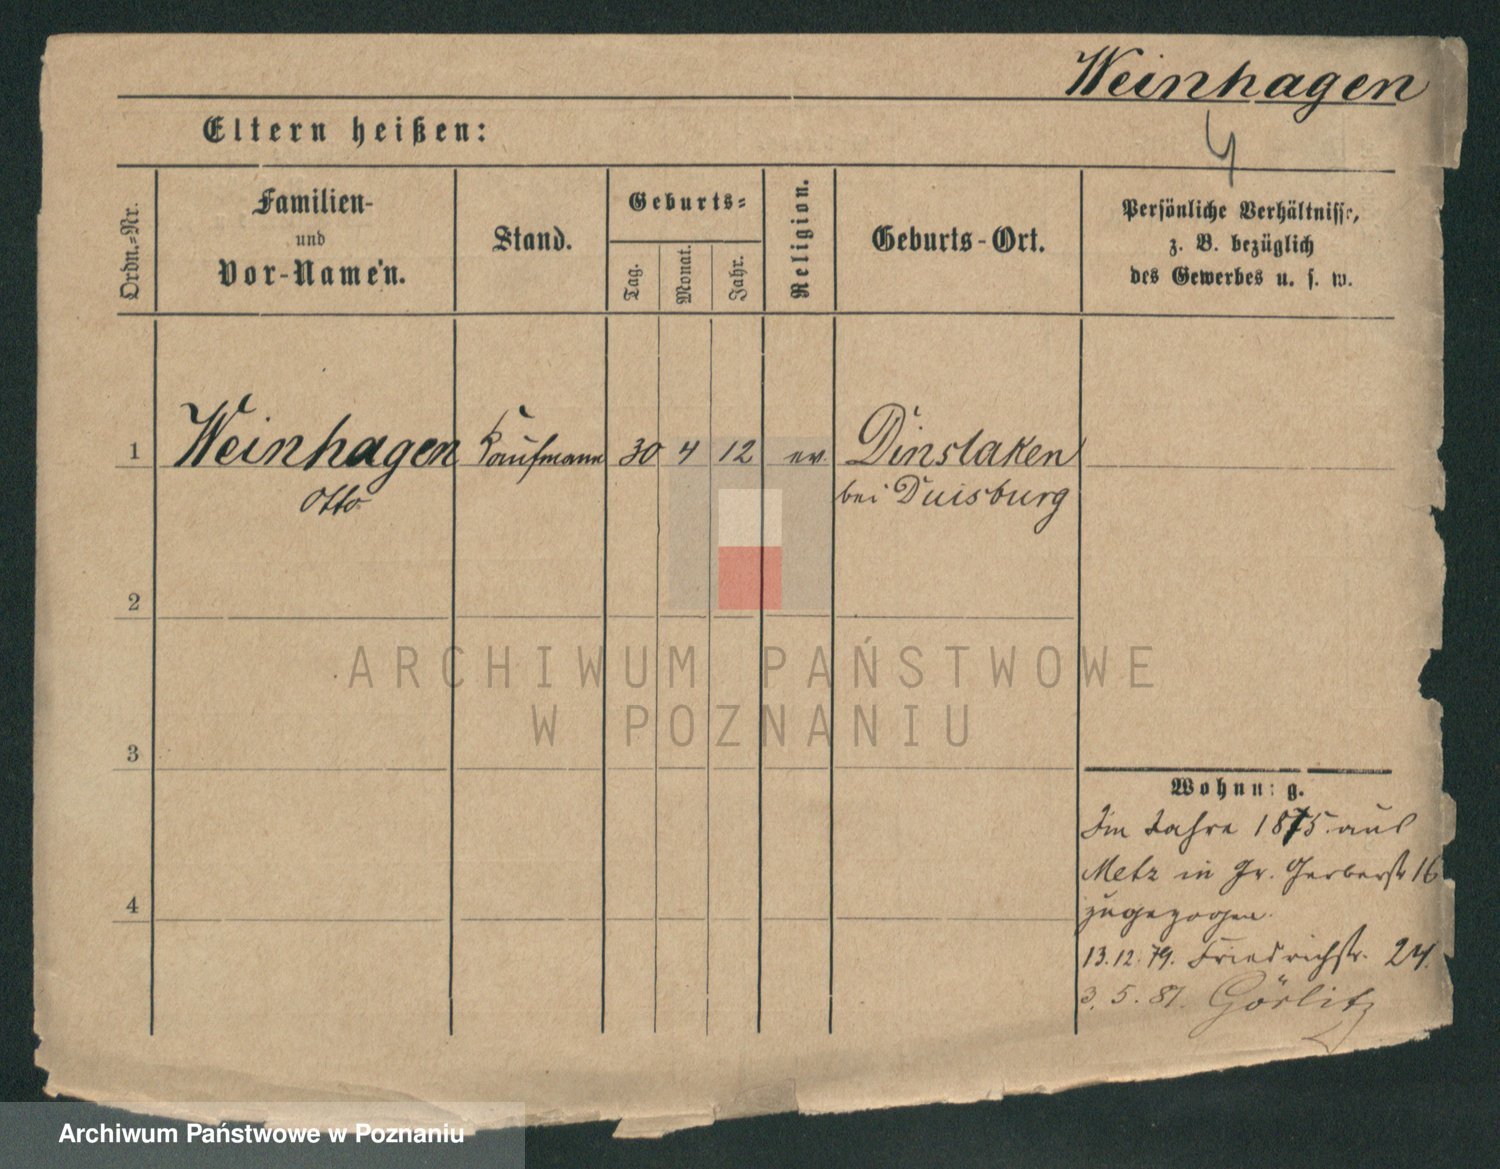 Weinhagen
Eltern heißen:
Ordn.-Nr.
Familien-
und
Vor-Namen.
Stand.
Geburts-
Tag.
Monat.
Jahr.
Religion.
Geburts-Ort.
Persönliche Verhältnisse,
z. B. bezüglich
des Gewerbes u. s. w.
1 Weinhagen Kaufmann 30 4 12 ev. Dinslaken
Otto bei Duisburg
2
3
4
Wohnung.
Im Jahre 1875 aus
Metz in Gr. Gerberstr 16
zugezogen.
13.12.79. Friedrichstr. 24.
3. 5. 81. Görlitz
ARCHIWUM PAŃSTWOWE
W POZNANIU
Archiwum Państwowe w Poznaniu